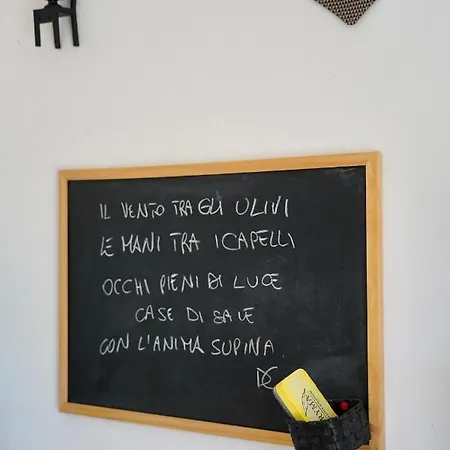 IL VENTO TRA GLI ULIVI
LE MANI TRA I CAPELLI
OCCHI PIENI DI LUCE
CASE DI SALE
CON L'ANIMA SUPINA.
DC